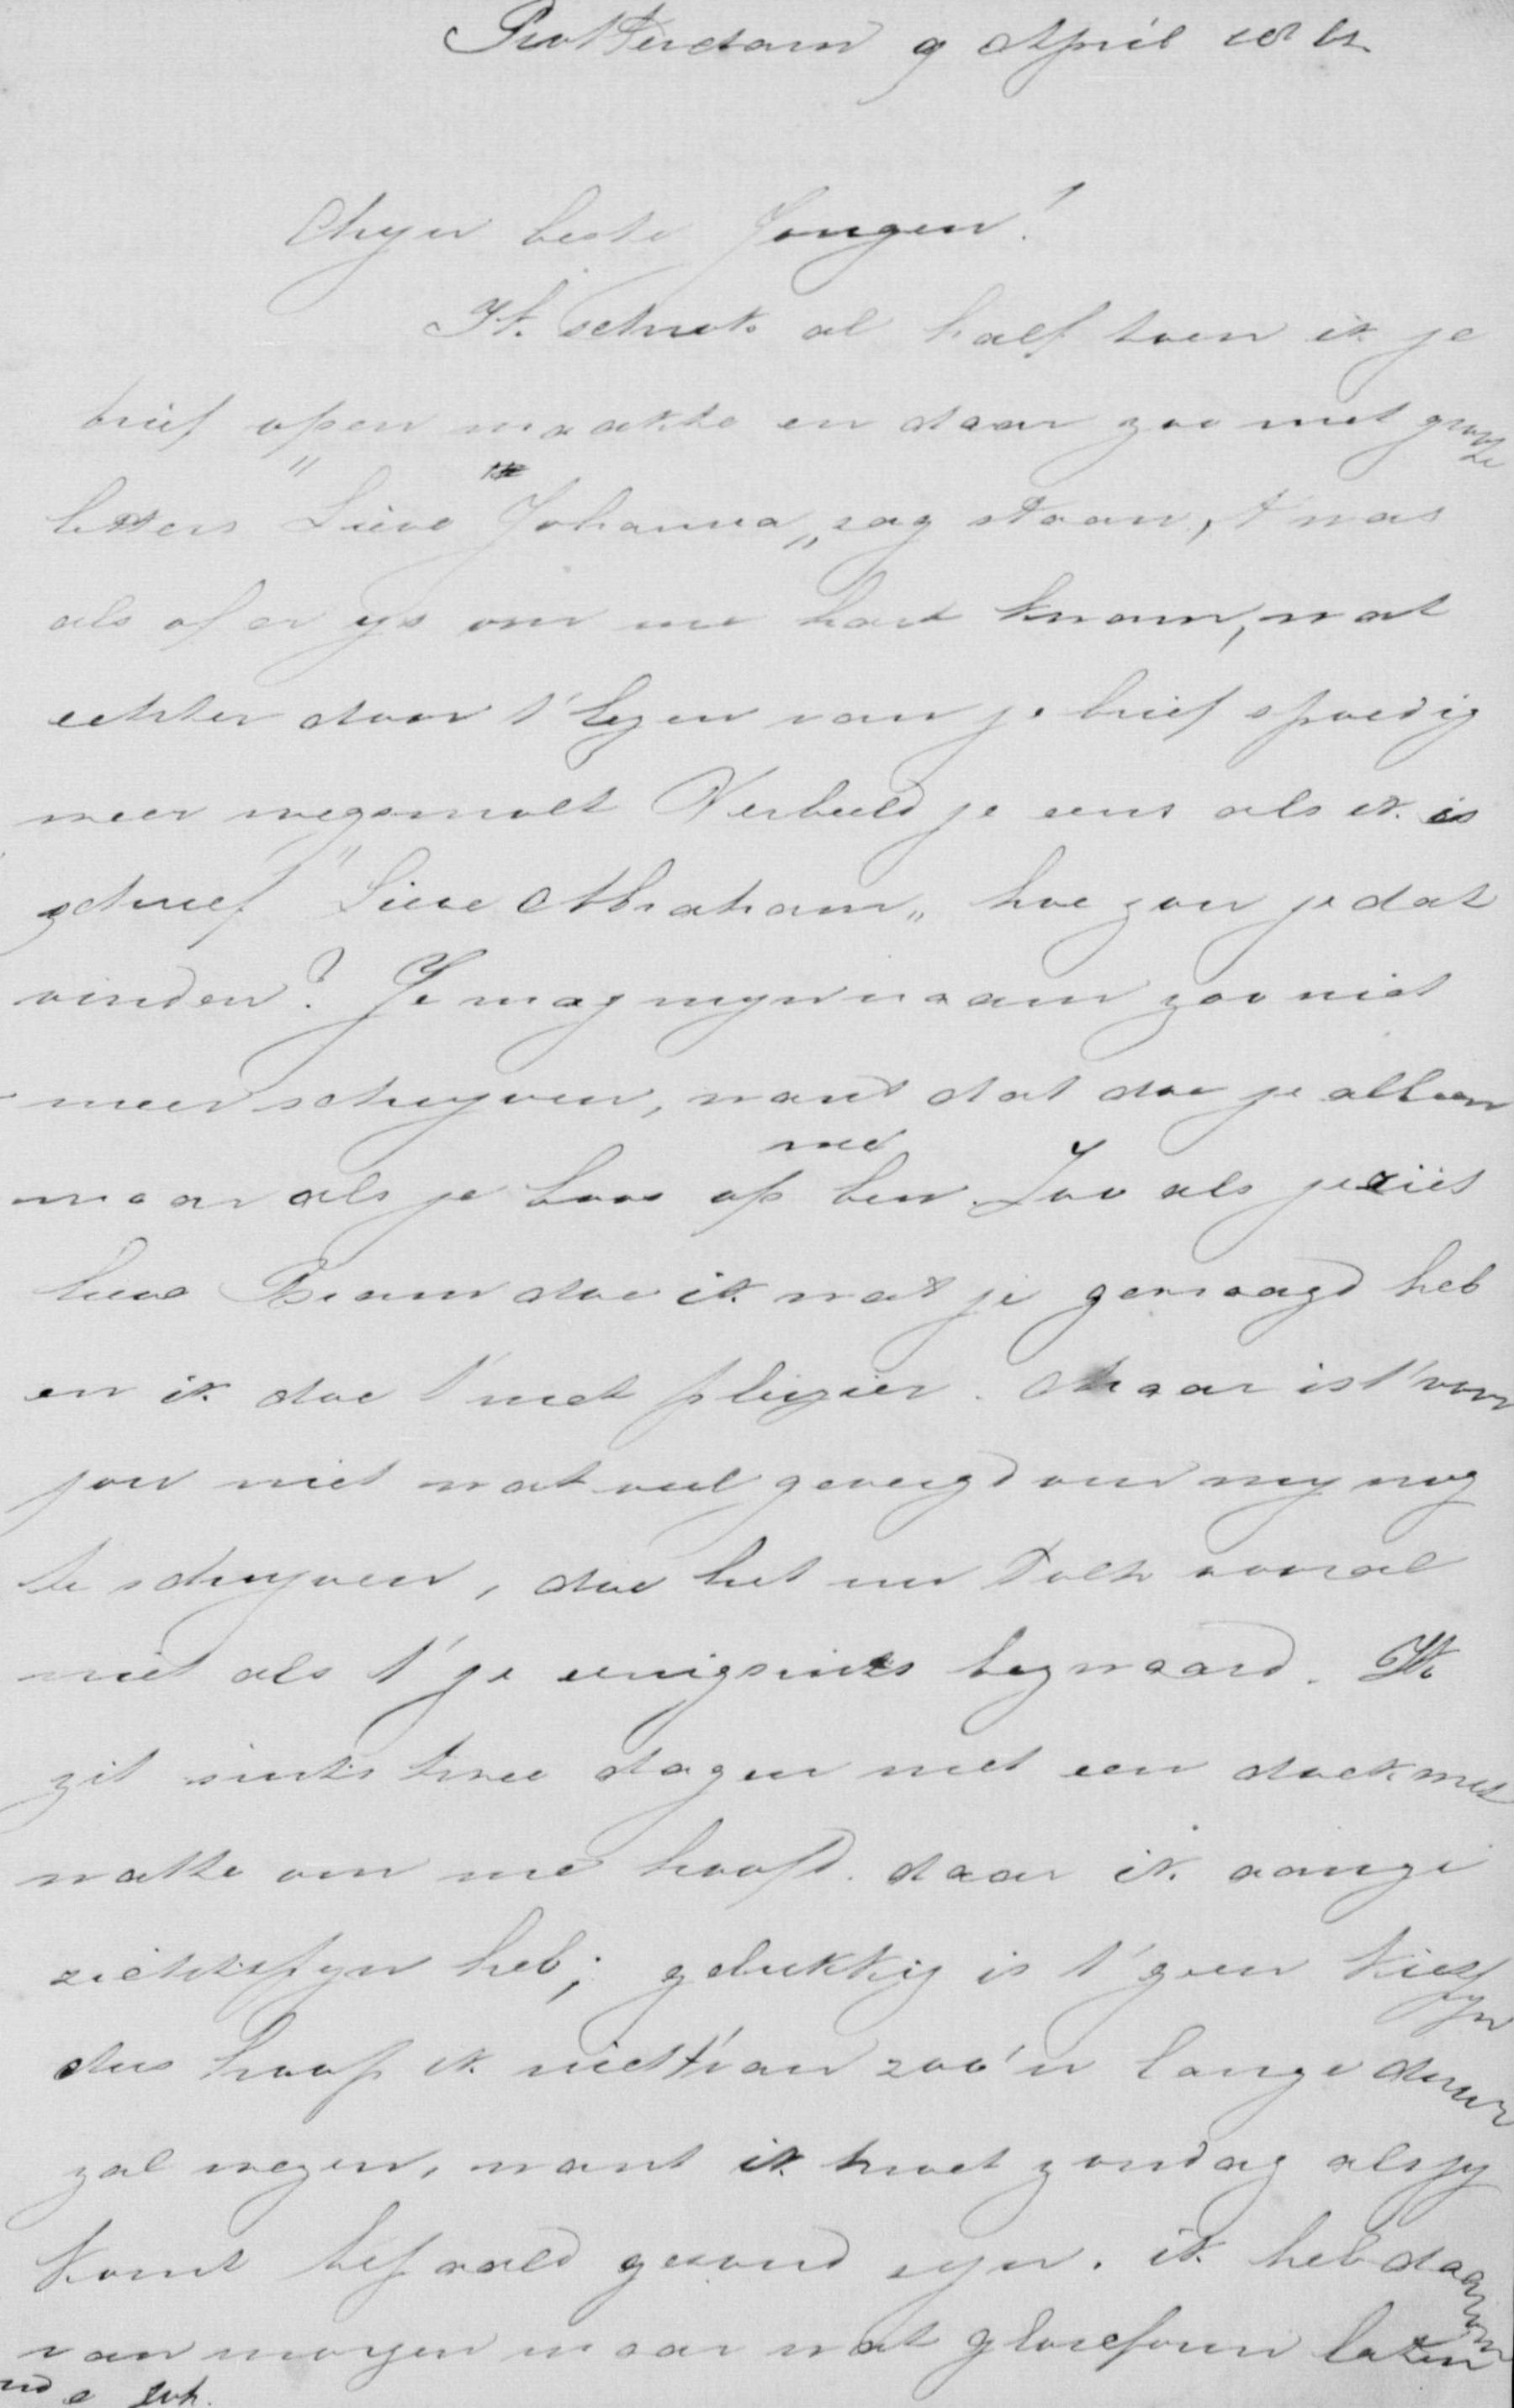 Rotterdam 9 April
Myn beste Jongen!
Ik schrok al half toen ik je
brief open maakte en daar zoo met groote
letters "Lieve Johanna„ zag staan, t was
als of er ys om me hart kwam, wat
echter door t' lezen van je brief spoedig
weer wegsmolt Verbeeld je eens als ik is
schreef "Lieve Abraham„ hoe zou je dat
vinden? Je mag myn naam zoo niet
meer schryven, want dat doe je alleen
maar als je boos op me ben. Zoo als je ziet
lieve Bram doe ik wat je gevraagd heb
en ik doe t' met plezier. Maar is t' voor
jou niet wat veel gevergd om my nog
te schryven, doe het nu toch vooral
niet als t' je eenigsints bezwaard. Ik
zit sints twee dagen met een doek met
watte om me hoofd. daar ik aange
zichtspyn heb; gelukkig is t' geen kiespyn
dus hoop ik niet t' van zoo'n lange duur
zal wezen, want ik moet zondag als jy
komt bepaald gezond zyn. ik heb daarom
van morgen maar wat laten